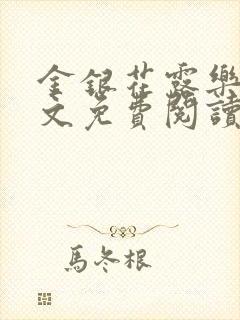 金銀花露樂
文免費閱讀
馬冬根